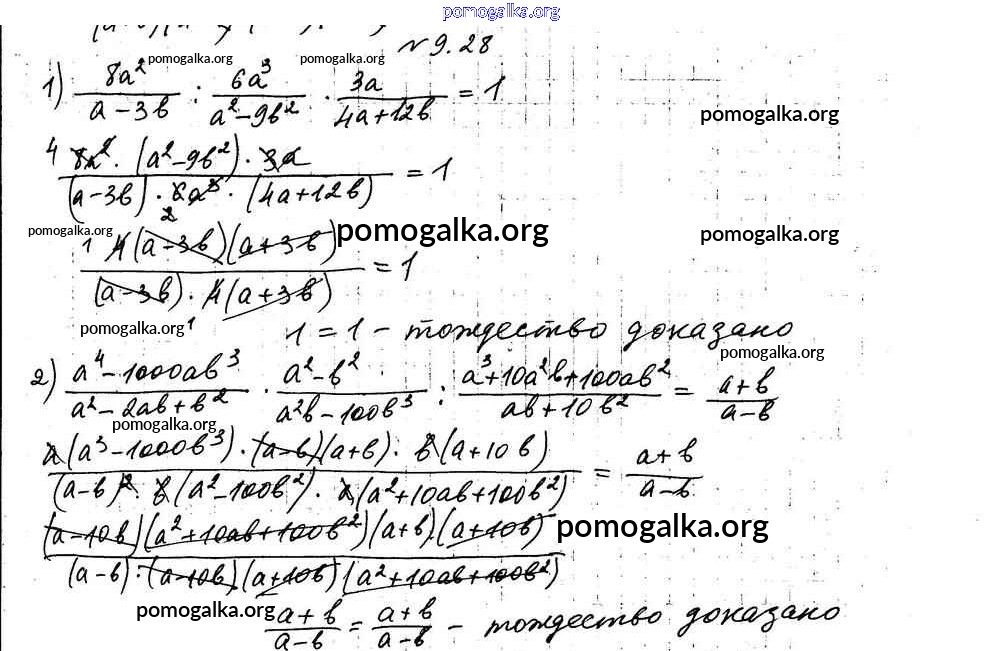 pomogalka.org
N 9.28
1) 8a²/(a-3b) : 6a³/(a²-9b²) · 3a/(4a+12b) = 1
pomogalka.org pomogalka.org
pomogalka.org
4 8a² · (a²-9b²) · 3a / (a-3b) · 6a³ · (4a+12b) = 1
2
pomogalka.org pomogalka.org pomogalka.org
1 4(a-3b)(a+3b) / (a-3b) · 4(a+3b) = 1
1
pomogalka.org 1 = 1 - тождество доказано
pomogalka.org
2) (a⁴-1000ab³)/(a²-2ab+b²) · (a²-b²)/(a²b-100b³) : (a³+10a²b+100ab²)/(ab+10b²) = (a+b)/(a-b)
pomogalka.org
a(a³-1000b³) · (a-b)(a+b) · b(a+10b) / (a-b)² · b(a²-100b²) · a(a²+10ab+100b²) = (a+b)/(a-b)
(a-10b)(a²+10ab+100b²)(a+b)·(a+10b) / (a-b)·(a-10b)·(a+10b)(a²+10ab+100b²)
pomogalka.org
pomogalka.org (a+b)/(a-b) = (a+b)/(a-b) - тождество доказано